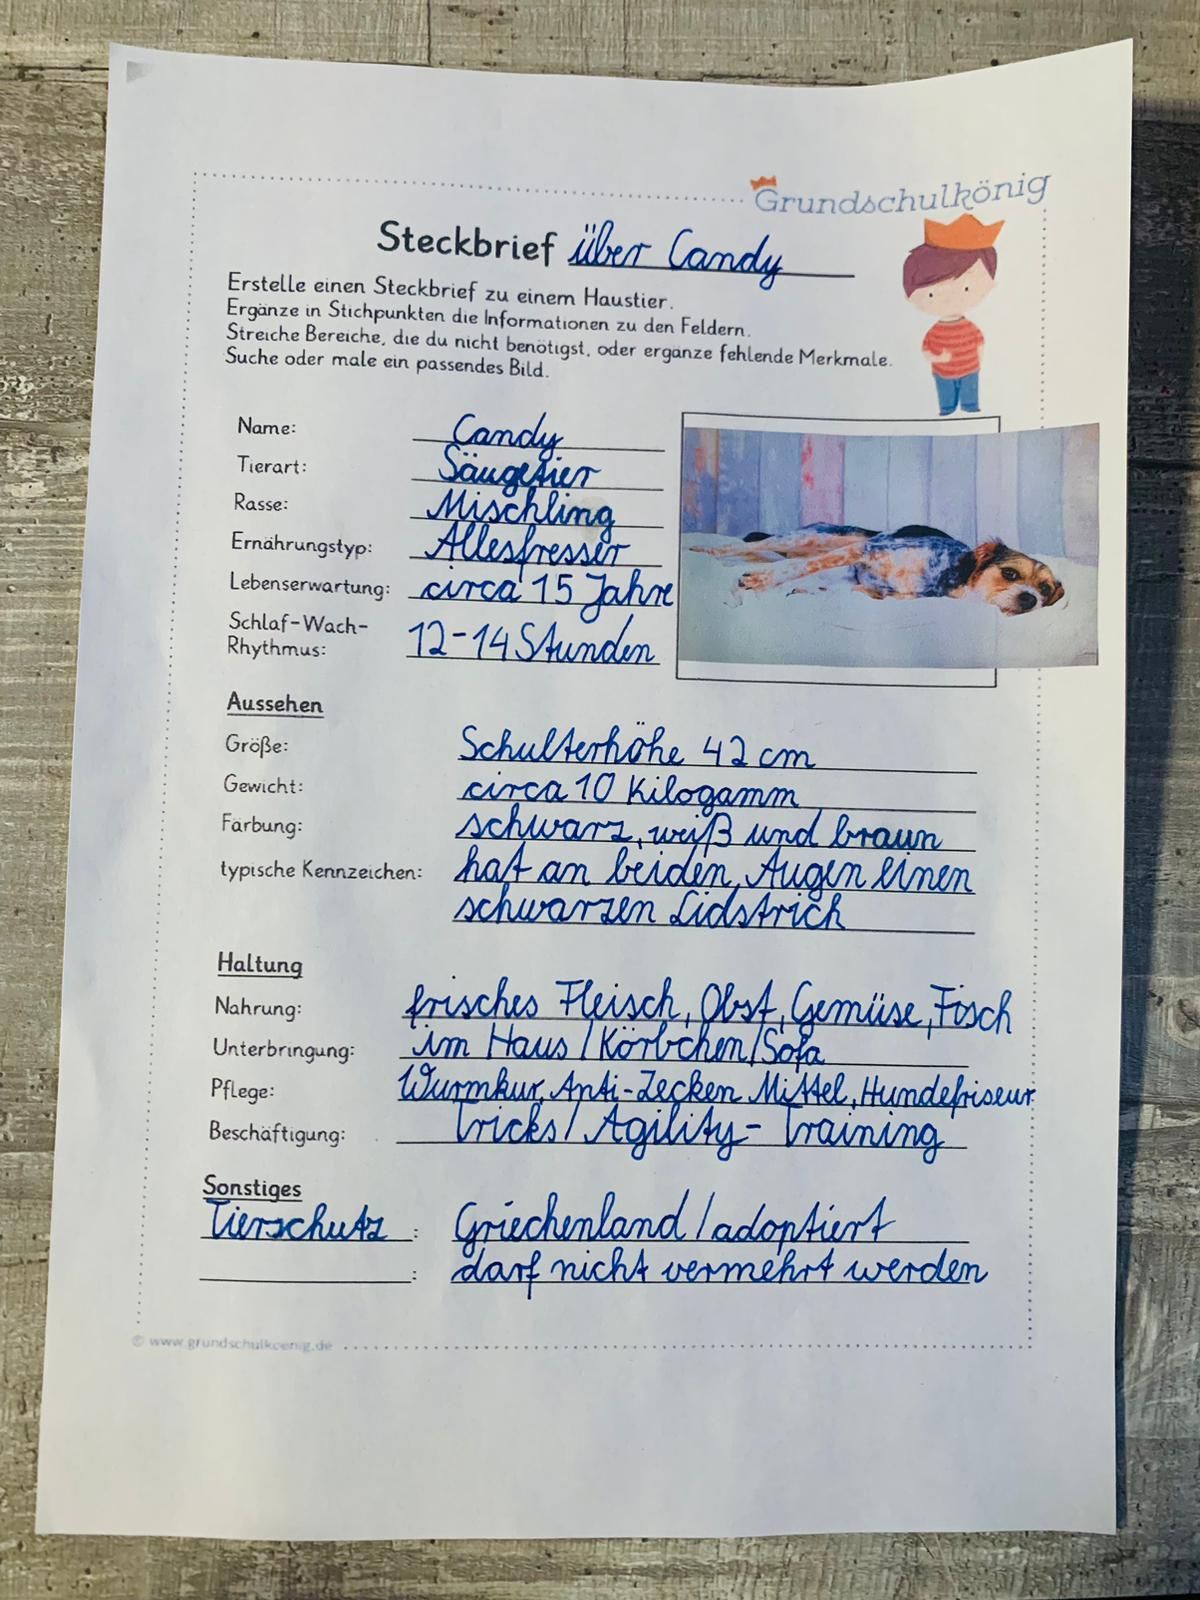 Grundschulkönig
Steckbrief über Candy
Erstelle einen Steckbrief zu einem Haustier.
Ergänze in Stichpunkten die Informationen zu den Feldern.
Streiche Bereiche, die du nicht benötigst, oder ergänze fehlende Merkmale.
Suche oder male ein passendes Bild.
Name: Candy
Tierart: Säugetier
Rasse: Mischling
Ernährungstyp: Allesfresser
Lebenserwartung: circa 15 Jahre
Schlaf-Wach-
Rhythmus: 12-14 Stunden
Aussehen
Größe: Schulterhöhe 42 cm
Gewicht: circa 10 Kilogamm
Färbung: schwarz, weiß und braun
typische Kennzeichen: hat an beiden Augen einen
schwarzen Lidstrich
Haltung
Nahrung: frisches Fleisch, Obst, Gemüse, Fisch
Unterbringung: im Haus / Körbchen/Sofa
Pflege: Wurmkur, Anti-Zecken Mittel, Hundefriseur
Beschäftigung: Tricks / Agility-Training
Sonstiges
Tierschutz : Griechenland / adoptiert
: darf nicht vermehrt werden
© www.grundschulkoenig.de